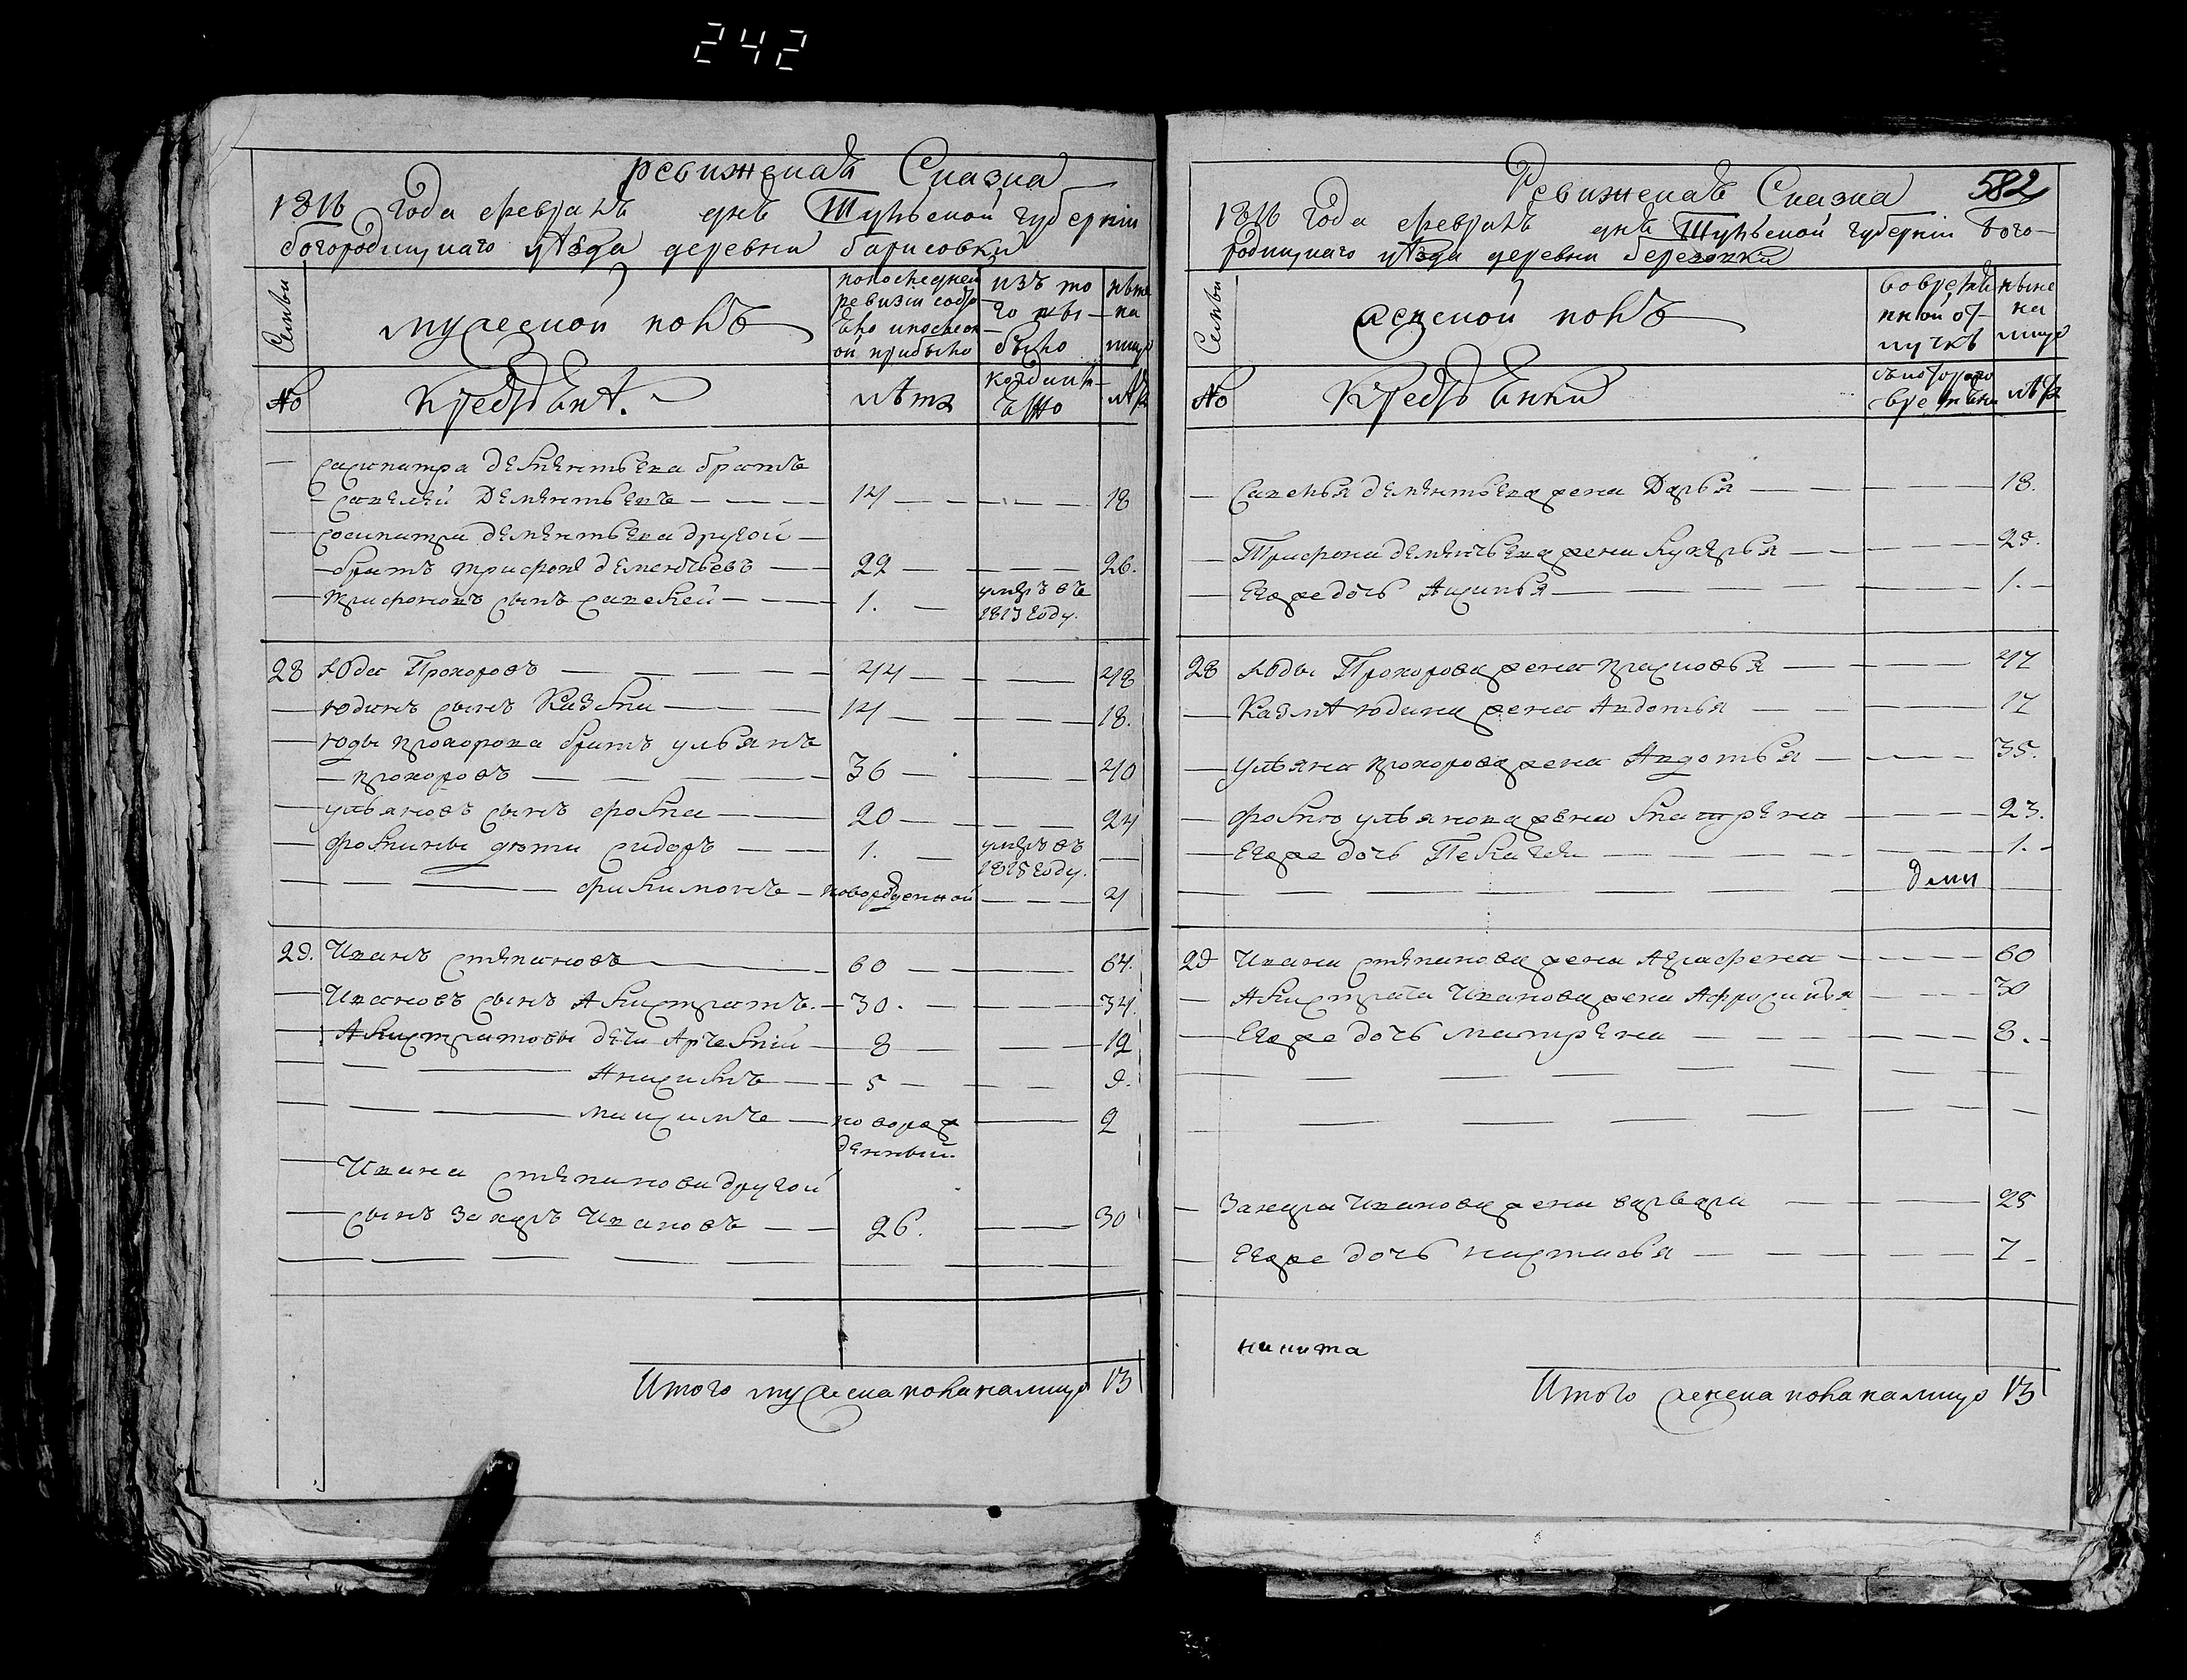 242
ревижская Сказка
1816 Года февраль дня Тульской губерніи
богородицкаго уѣзда деревни барисовки
Семьи
мужеской полъ
попоследней
ревизіи состо
яло ипослеон
ой прибыло
изъ то
го вы
было
ныне
на
лицо
No
Крестьянѣ.
лѣта
когдаим
ѣнно
лѣта
сасипатра деменьтьева братъ
савелей Деменьтьевъ 14 18
сосипатра деменьтьева другой
братъ трифонъ деменьтьевъ 22 26.
трифоновъ сынъ савелей 1. умеръ въ
1813 году.
28 Юда Прохоровъ 44 48
юдинъ сынъ Казьма 14 18.
юды прохорова братъ ульянъ
прохоровъ 36 40
ульяновъ сынъ фома 20 24
фомины дѣти сидоръ 1. умеръ въ
1815 году.
филимонъ новорожденной 4
29. Иванъ степановъ 60 64.
Ивановъ сынъ Акистратъ 30. 34.
Акистратовы дети Артемій 8 12
Анисимъ 5 9.
максимъ новорож
денный. 2
Ивана степанова другой
сынъ Захаръ Ивановъ 26. 30
Итого мужеска пола налицо 13
582
Ревижская Сказка
1816 Года февраль дня Тульской губерніи Бого-
родицкаго уѣзда деревни березовки
Семьи
женской полъ
вовреме
нной от
лучкѣ
ныне
на
лицо
No
Крестьянки
съкоторого
времени
лѣта
Савелья деменьтьева жена Дарья 18.
Трифона деменьтьева жена лукерья 25.
Егоже дочь Акулина 1.
28 Юды Прохорова жена прасковья 47
Казмы юдина жена Авдотья 17
Ульяна прохорова жена Авдотья 35.
фомы ульянова жена матрена 23.
Егоже дочь Пелагея 1.
29 Ивана степанова жена Аграфена 60
Акистрата Иванова жена Афросинья 30
Егоже дочь матрена 8.
Захара Иванова жена варвара 25
Егоже дочь настасья 7
никита
Итого женска пола налицо 13